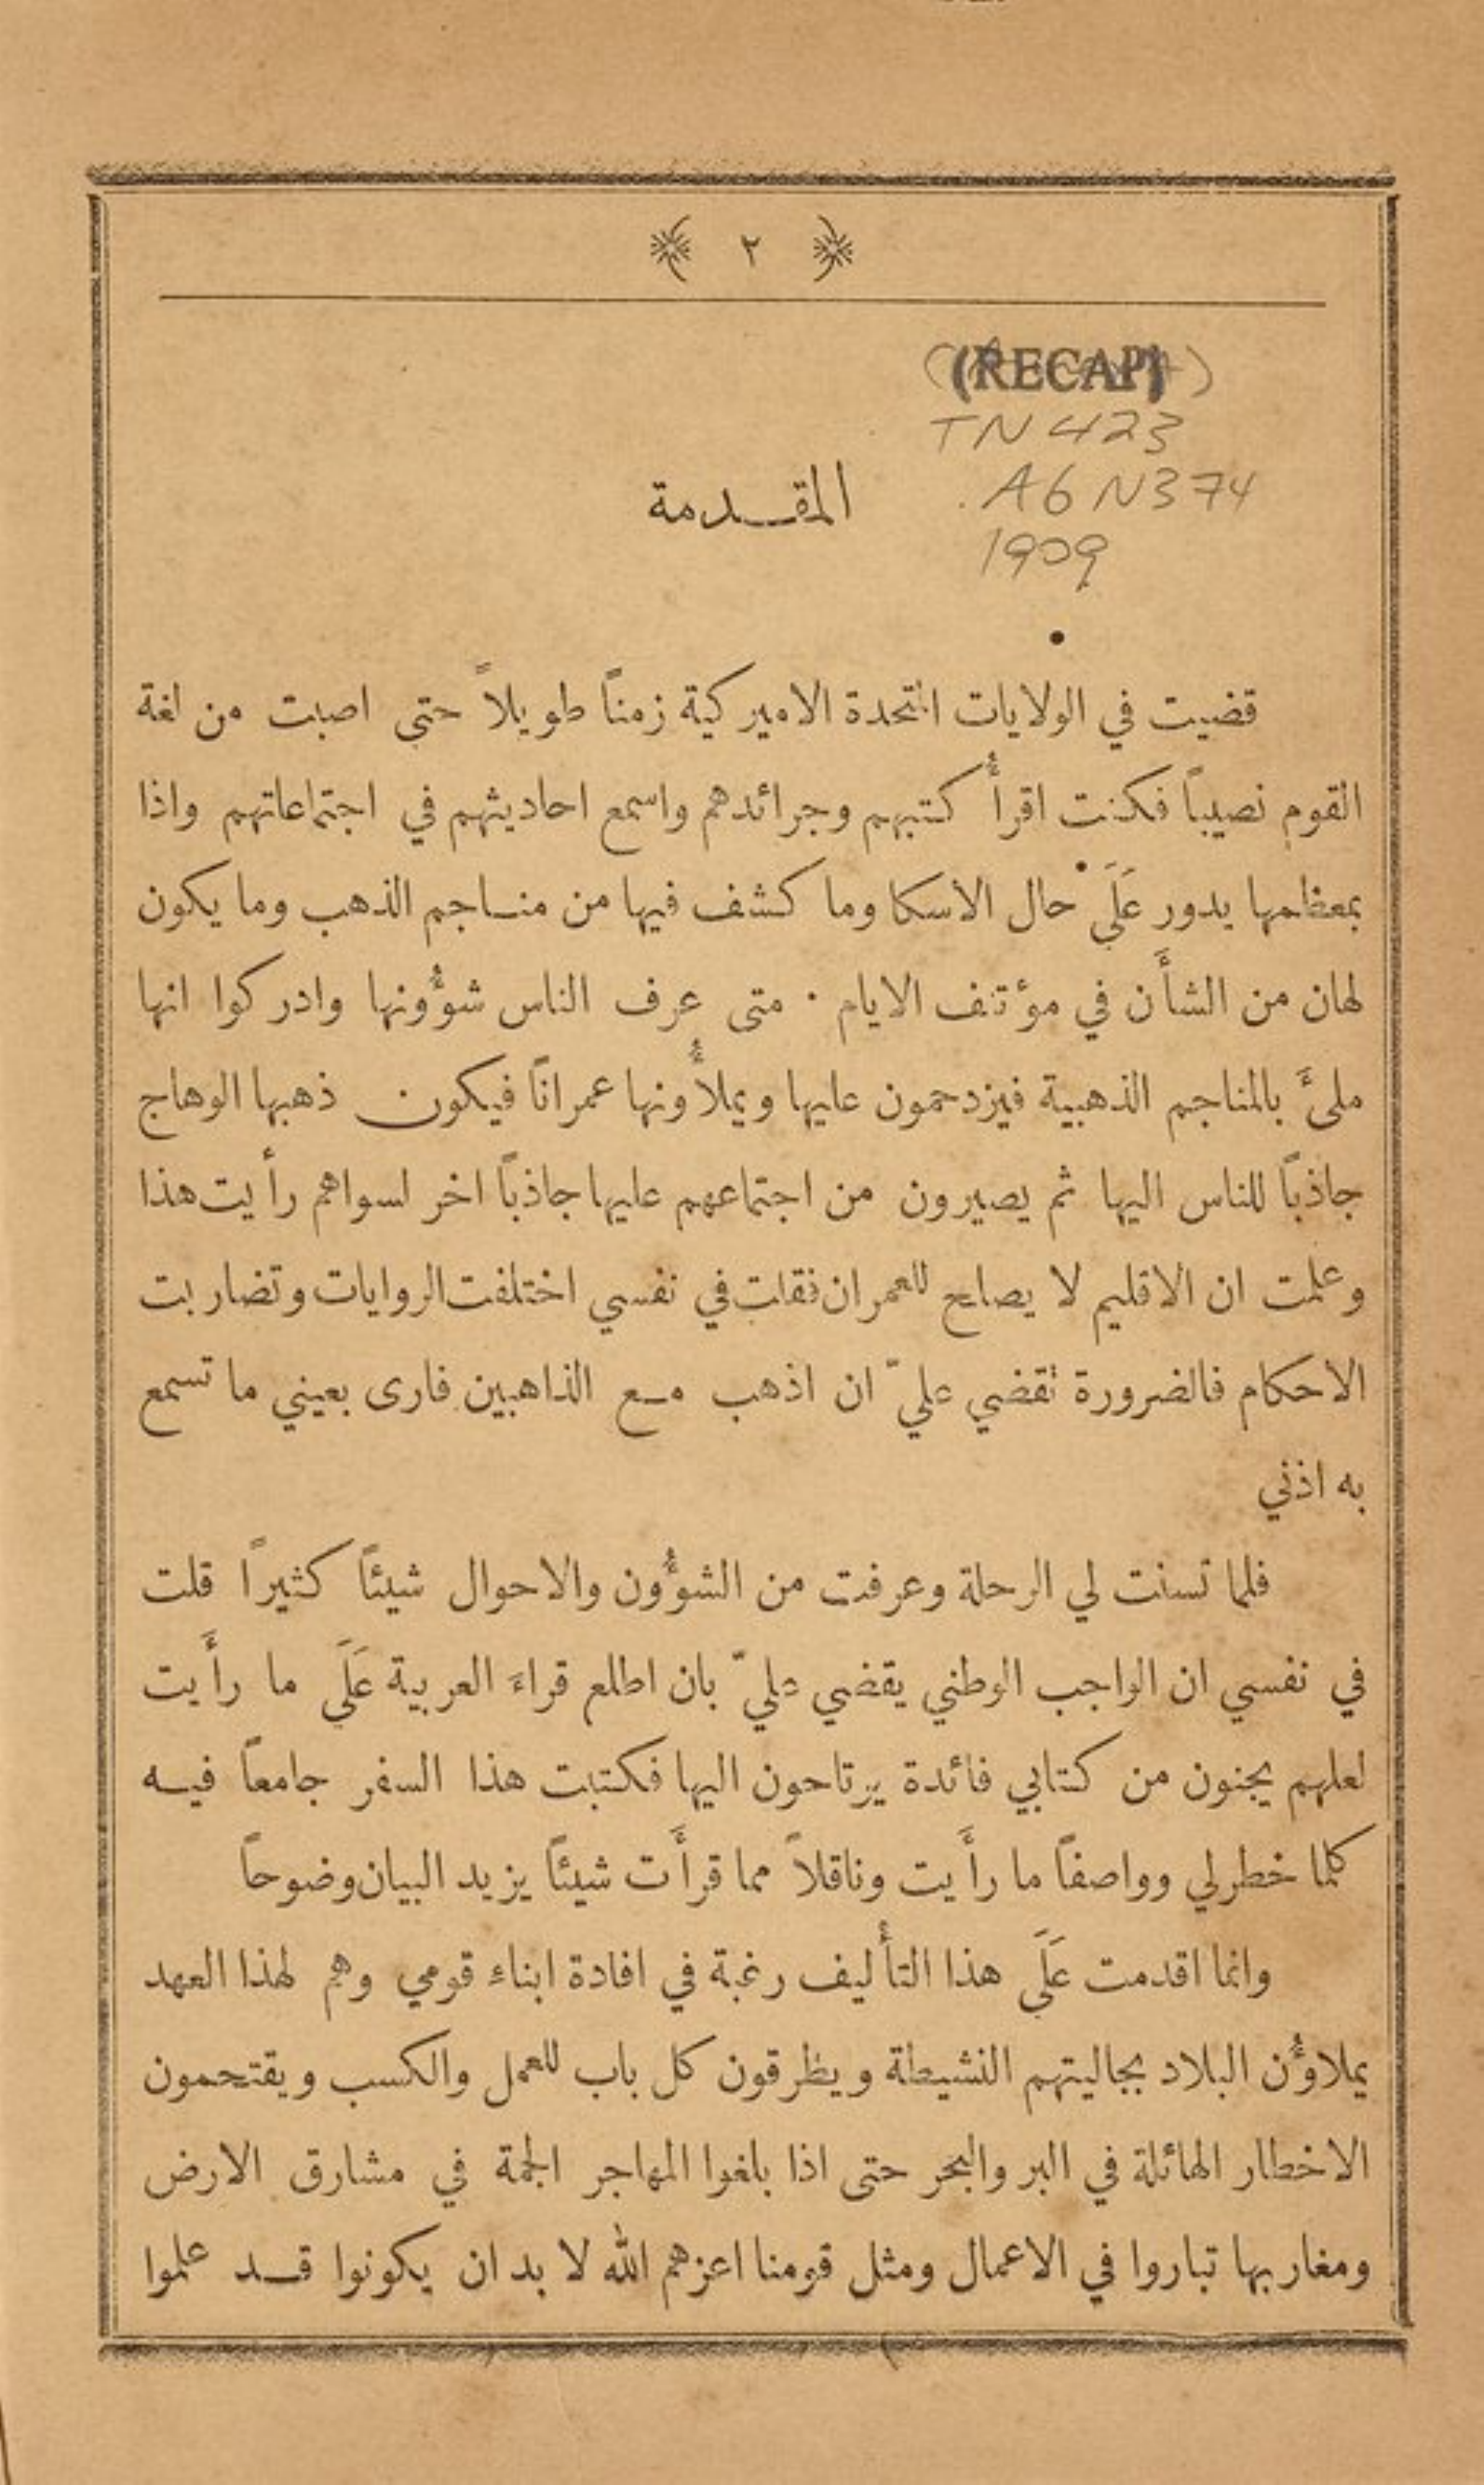 ٢
(RECAP)
TN 423
.A6 N374
1909
المقـدمة
قضيت في الولايات المتحدة الاميركية زمناً طويلاً حتى اصبت من لغة
القوم نصيباً فكنت اقرأُ كتبهم وجرائدهم واسمع احاديثهم في اجتماعاتهم واذا
بمعظمها يدور عَلَى حال الاسكا وما كشف فيها من منـاجم الذهب وما يكون
لهان من الشأَن في مؤتنف الايام · متى عرف الناس شوُّونها وادركوا انها
ملئَ بالمناجم الذهبية فيزدحمون عليها ويملأُونها عمراناً فيكون ذهبها الوهاج
جاذباً للناس اليها ثم يصيرون من اجتماعهم عليها جاذباً اخر لسواهم رأيت هذا
وعلمت ان الاقليم لا يصلح للعمران فقلت في نفسي اختلفت الروايات وتضاربت
الاحكام فالضرورة تقضي عليّ ان اذهب مـع الذاهبين فارى بعيني ما تسمع
به اذني
فلما تسنت لي الرحلة وعرفت من الشوُّون والاحوال شيئاً كثيراً قلت
في نفسي ان الواجب الوطني يقضي عليّ بان اطلع قراءَ العربية عَلَى ما رأَيت
لعلهم يجنون من كتابي فائدة يرتاحون اليها فكتبت هذا السفر جامعاً فيـه
كلما خطر لي وواصفاً ما رأَيت وناقلاً مما قرأَت شيئاً يزيد البيان وضوحاً
وانما اقدمت عَلَى هذا التأليف رغبة في افادة ابناء قومي وهم لهذا العهد
يملاوُن البلاد بجاليتهم النشيطة ويطرقون كل باب للعمل والكسب ويقتحمون
الاخطار الهائلة في البر والبحر حتى اذا بلغوا المهاجر الجمة في مشارق الارض
ومغاربها تباروا في الاعمال ومثل قومنا اعزهم الله لا بد ان يكونوا قـد علموا